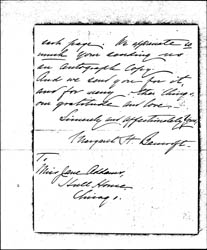 each page. We appreciate so
much your sending us
an Autograph Copy.
And we send you for it
and for many other things,
our gratitude and love.
Sincerely and affectionately yours,
Margaret H. Bancroft.
To
Miss Jane Addams,
Hull House
Chicago.